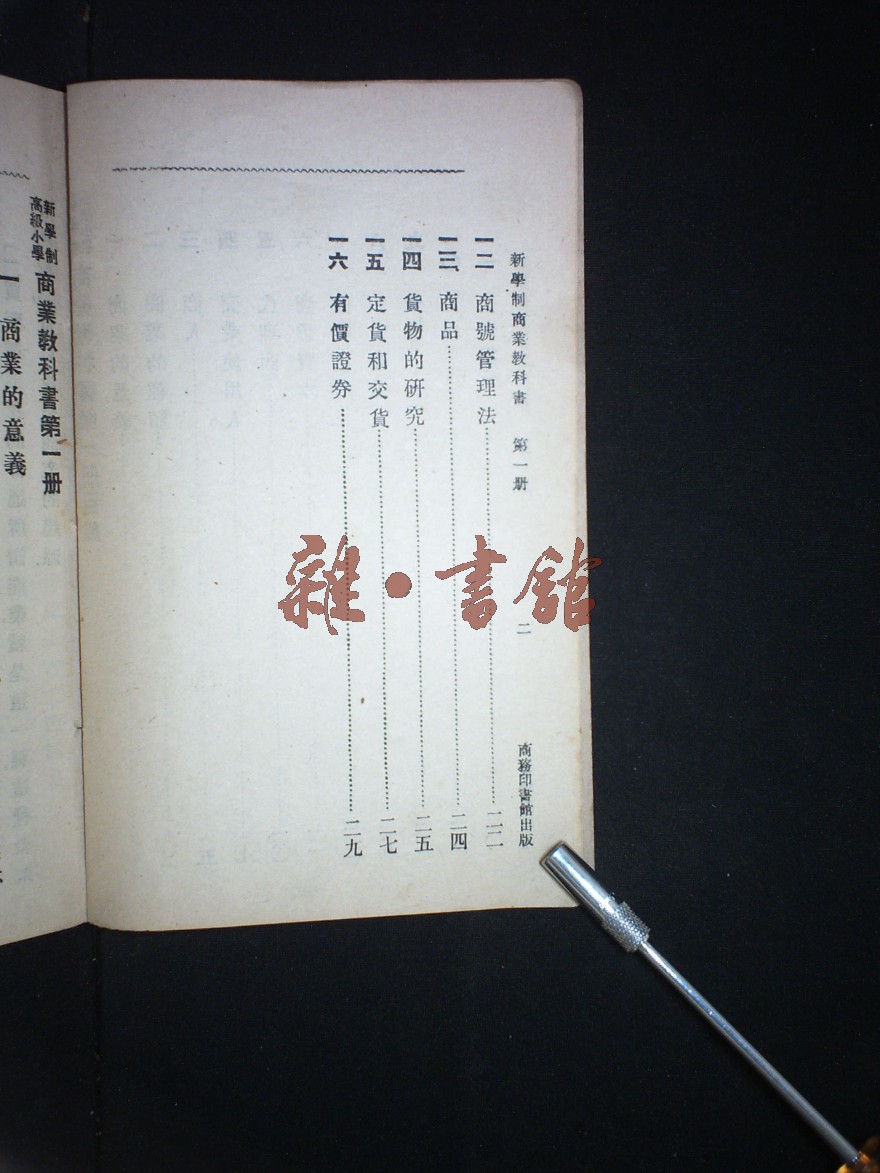 新學制商業教科書 第一册 二 商務印書館出版
一二 商號管理法 二二
一三 商品 二四
一四 貨物的研究 二五
一五 定貨和交貨 二七
一六 有價證券 二九
新學制
高級小學
商業教科書第一册
一 商業的意義
雜·書館